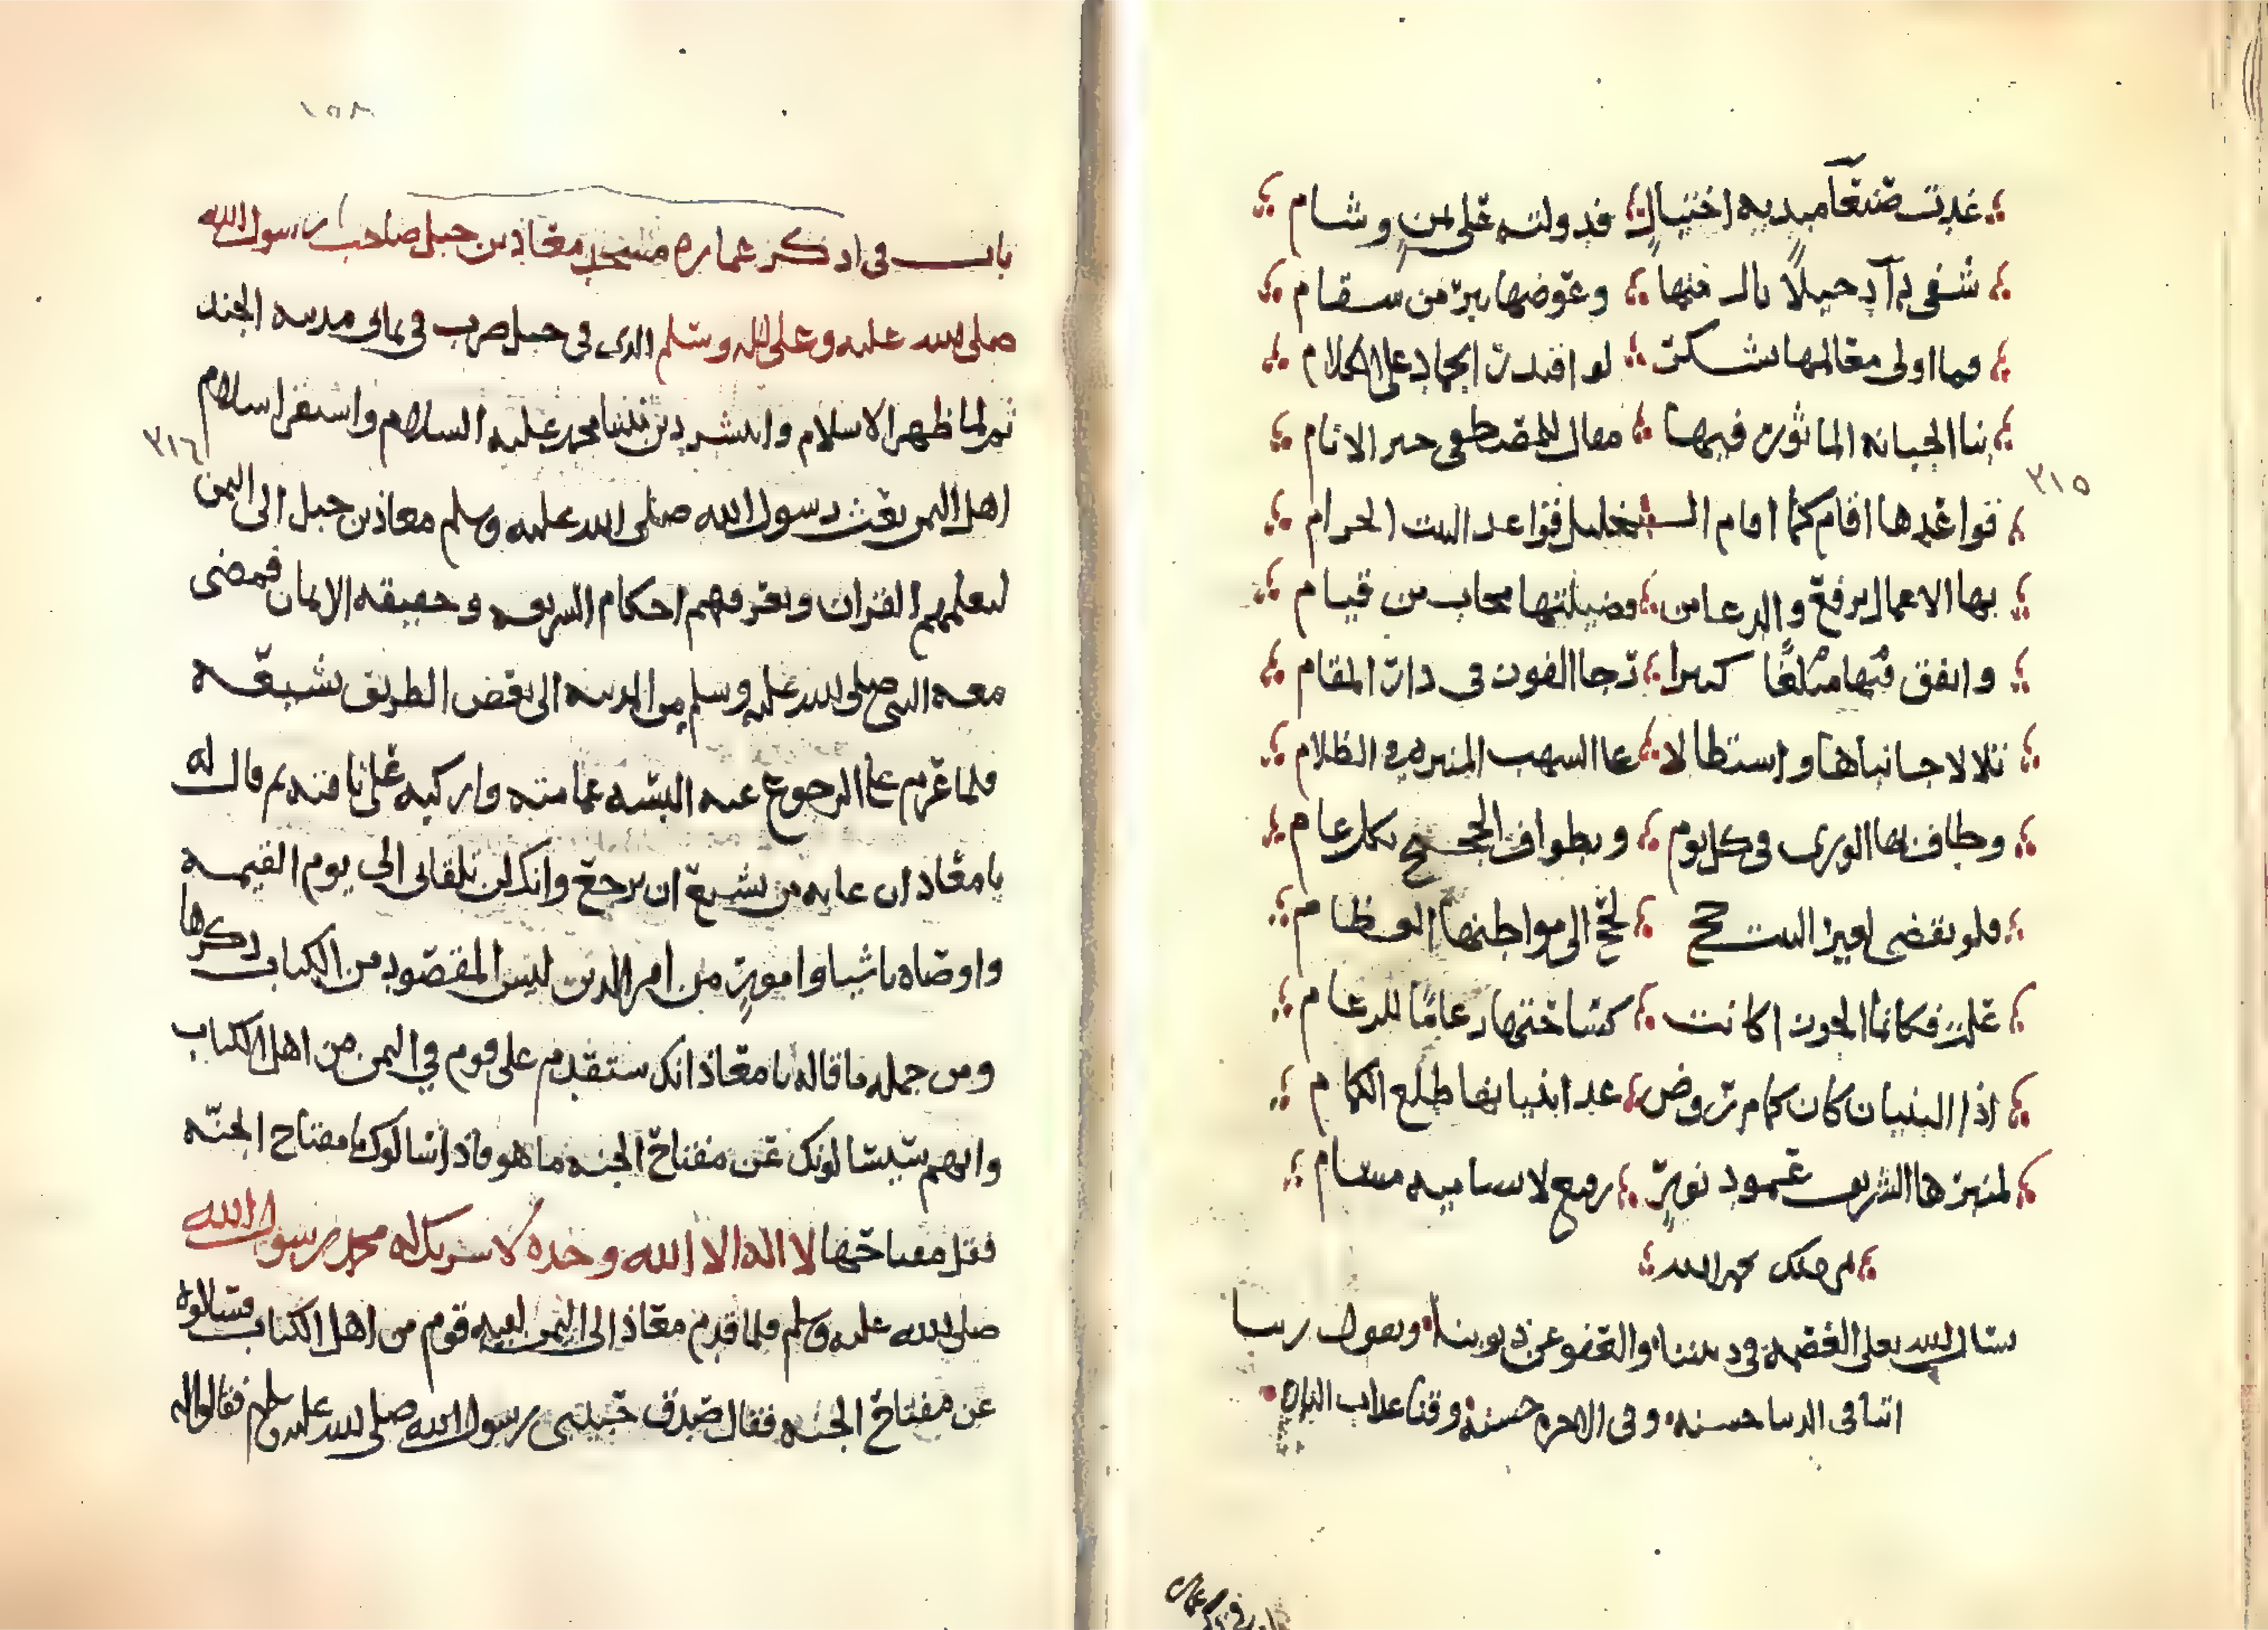 غدت صنعا مبديه اختيال فدولته على يمن وشام
شفى بدآ دخيلا نال منها وعوضها ببر من سقام
فما اولى معالمها بشكر لو اقتدرت الجماد على الكلام
بنا الجبانه الماثور فيها مقال المصطفى خير الانام
قواعدها اقام كما اقام الخليل قواعد البيت الحرام
بها الاعمال ترفع والدعا من فضيلتها مجاب من قيام
وانفق فيها مبلغا كبيرا رجا الفوز في دار المقام
تلالا جانباها واستطالا على الشهب المنيره في الظلام
وطاف بها الورى في كل يوم وتطواف الحجيج بكل عام
فلو يقضى لغير البيت حج لحج الى مواطنها العظام
علت فكانما الجوزا كانت كسا ختمها دعاما للدعام
اذا البنيان كان كمام روض غدا بنيانها طلع الكمام
لمنبرها الشريف عمود نور رفيع لا يساميه مسام
بحمد الله
نسال الله تعلى العصمة في ديننا والعفو عن ذنوبنا ونقول ربنا
اتنا في الدنيا حسنه وفي الاخره حسنة وقنا عذاب النار
٣١٥
١٥٨
باب في ذكر عماره مسجد معاذ بن جبل صاحب رسول الله
صلى الله عليه وعلى اله وسلم الذى في جبل صرب في يماني مدينه الجند
ثم لما ظهر الاسلام وانتشر دين نبينا محمد عليه السلام واستقر اسلام
٣١٦
اهل اليمن بعث رسول الله صلى الله عليه وسلم معاذ بن جبل الى اليمن
ليعلمهم القران ويعرفهم احكام الشريعه وحقيقه الايمان فمضى
معه النبي صلى الله عليه وسلم من المدينه الى بعض الطريق يشيعه
فلما عزم على الرجوع عنه البسه عمامته واركبه على ناقته ثم قال له
يا معاذ ان غايه من يشيع ان يرجع وانك لن تلقاني الى يوم القيمه
واوصاه باشيا وامور من امر الدين ليس المقصود من الكتاب ذكرها
ومن جمله ما قاله يا معاذ انك ستقدم على قوم في اليمن من اهل الكتاب
وانهم سيسالونك عن مفتاح الجنه ما هو فاذا سالوك يا مفتاح الجنه
فقل مفتاحها لا اله الا الله وحده لا شريك له محمد رسول الله
صلى الله عليه وسلم فلما قدم معاذ الى اليمن لقيه قوم من اهل الكتاب فسالوه
عن مفتاح الجنه فقال صدق حبيبى رسول الله صلى الله عليه وسلم فقالوا له